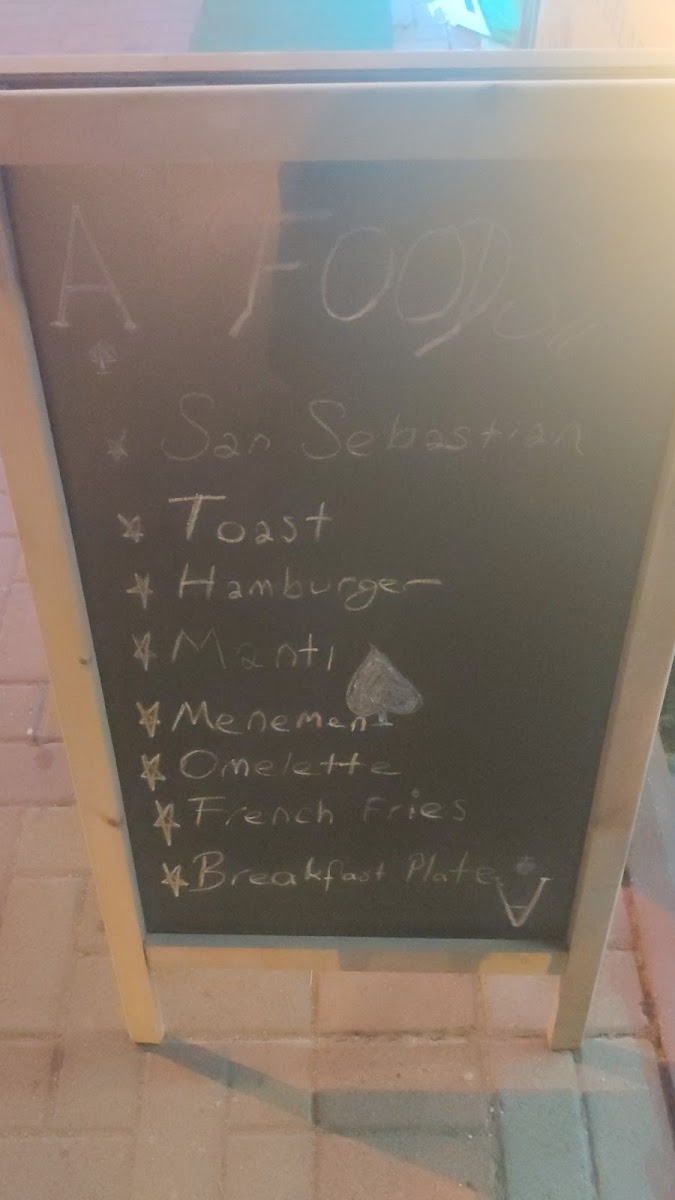 A FOODS..
San Sebastian
Toast
Hamburger
Mantı
Menemen
Omelette
French Fries
Breakfast Plate
A